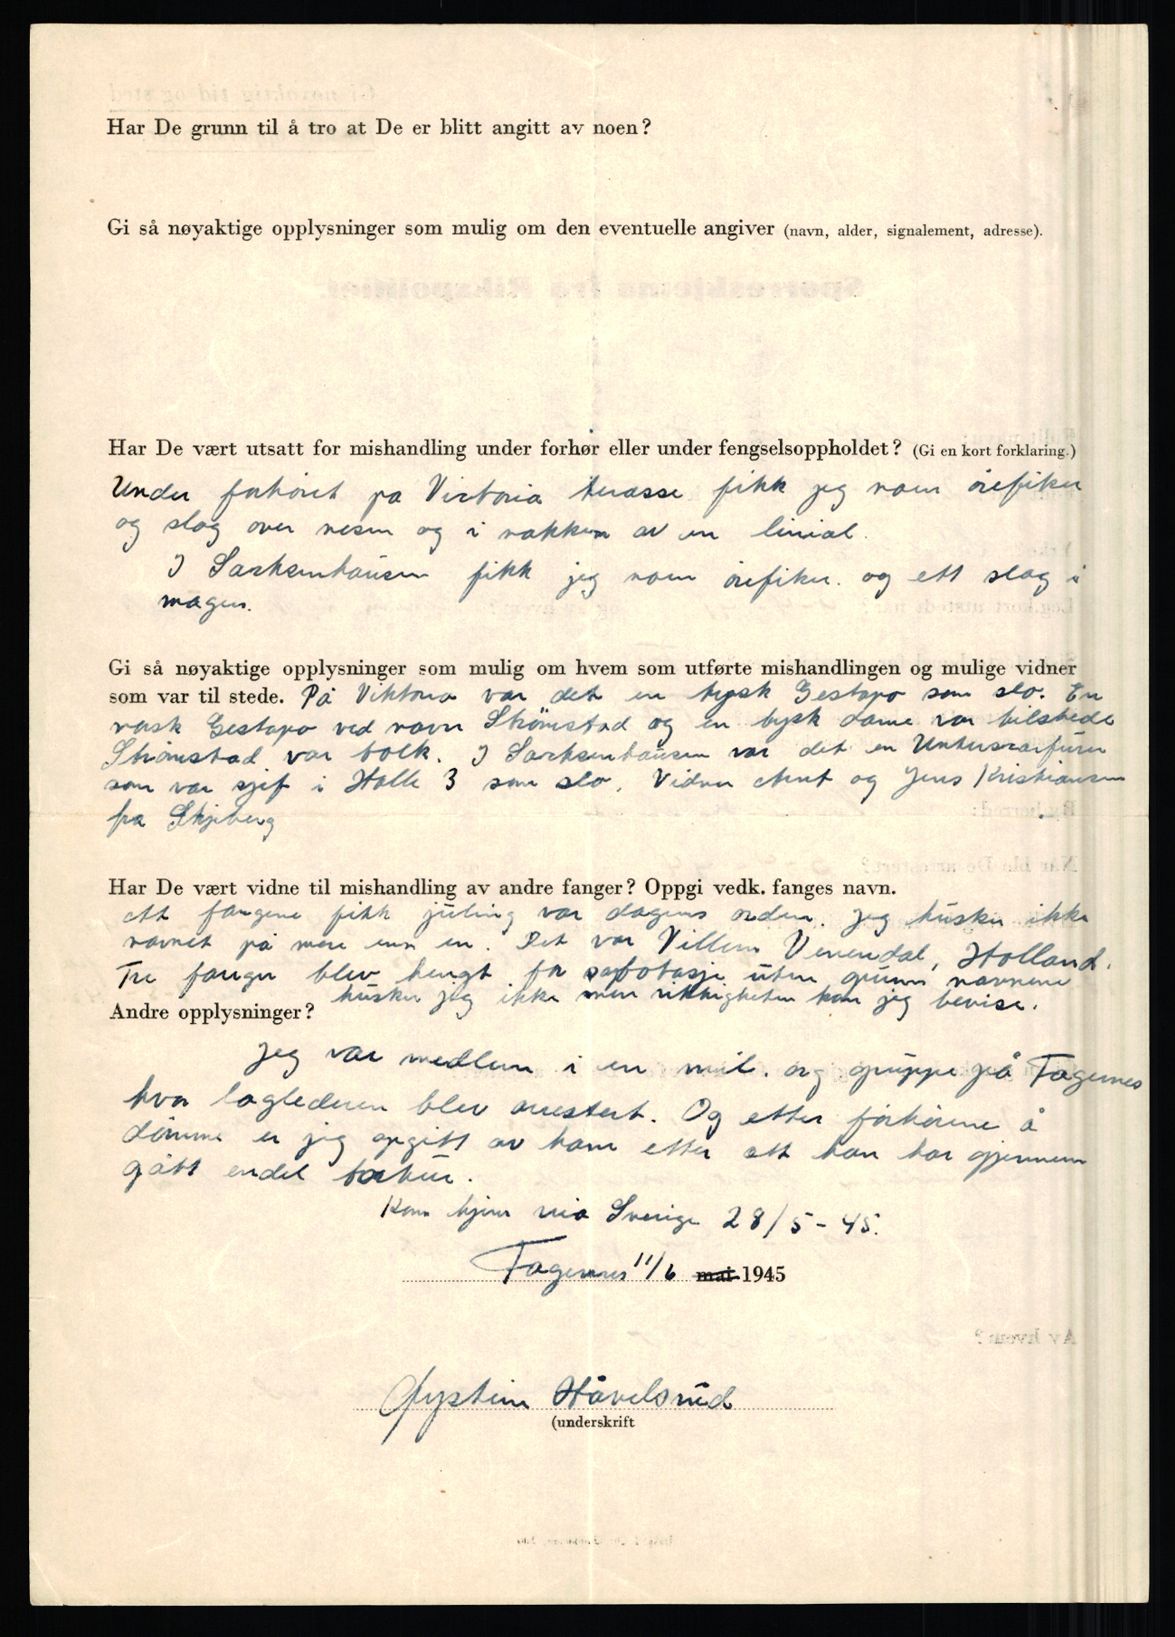 Har De grunn til å tro at De er blitt angitt av noen?
Gi så nøyaktige opplysninger som mulig om den eventuelle angiver (navn, alder, signalement, adresse).
Har De vært utsatt for mishandling under forhør eller under fengselsoppholdet? (Gi en kort forklaring.)
Under forhöret på Victoria terasse fikk jeg noen örefiker
og slag over nesen og i nakken av en linial.
I Sachsenhausen fikk jeg noen örefiker. og ett slag i
magen.
Gi så nøyaktige opplysninger som mulig om hvem som utførte mishandlingen og mulige vidner
som var til stede. På Viktoria var det en tysk Gestapo som slo. En
norsk Gestapo ved navn Strömstad og en tysk dame var tilstede
Strömstad var tolk. I Sachsenhausen var det en
som var sjef i Halle 3 som slo. Vidner Arnt og Jens Kristiansen
fra Skjeberg
Har De vært vidne til mishandling av andre fanger? Oppgi vedk. fanges navn.
Att fangene fikk juling var dagens orden. Jeg husker ikke
navnet på mere enn en. Det var Villem Venendal, Holland.
Tre fanger blev hengt for sabotasje uten grunn navnene
husker jeg ikke men riktigheten kan jeg bevise.
Andre opplysninger?
Jeg var medlem i en mil. org gruppe på Fagernes
hvor laglederen blev arrestert. Og etter forhörene å
dömme er jeg opgitt av ham etter att han har gjennem
gått endel tortur.
Kom hjem via Sverige 28/5-45.
Fagernes 11/6 mai 1945
Øystein Håvelsrud
(underskrift